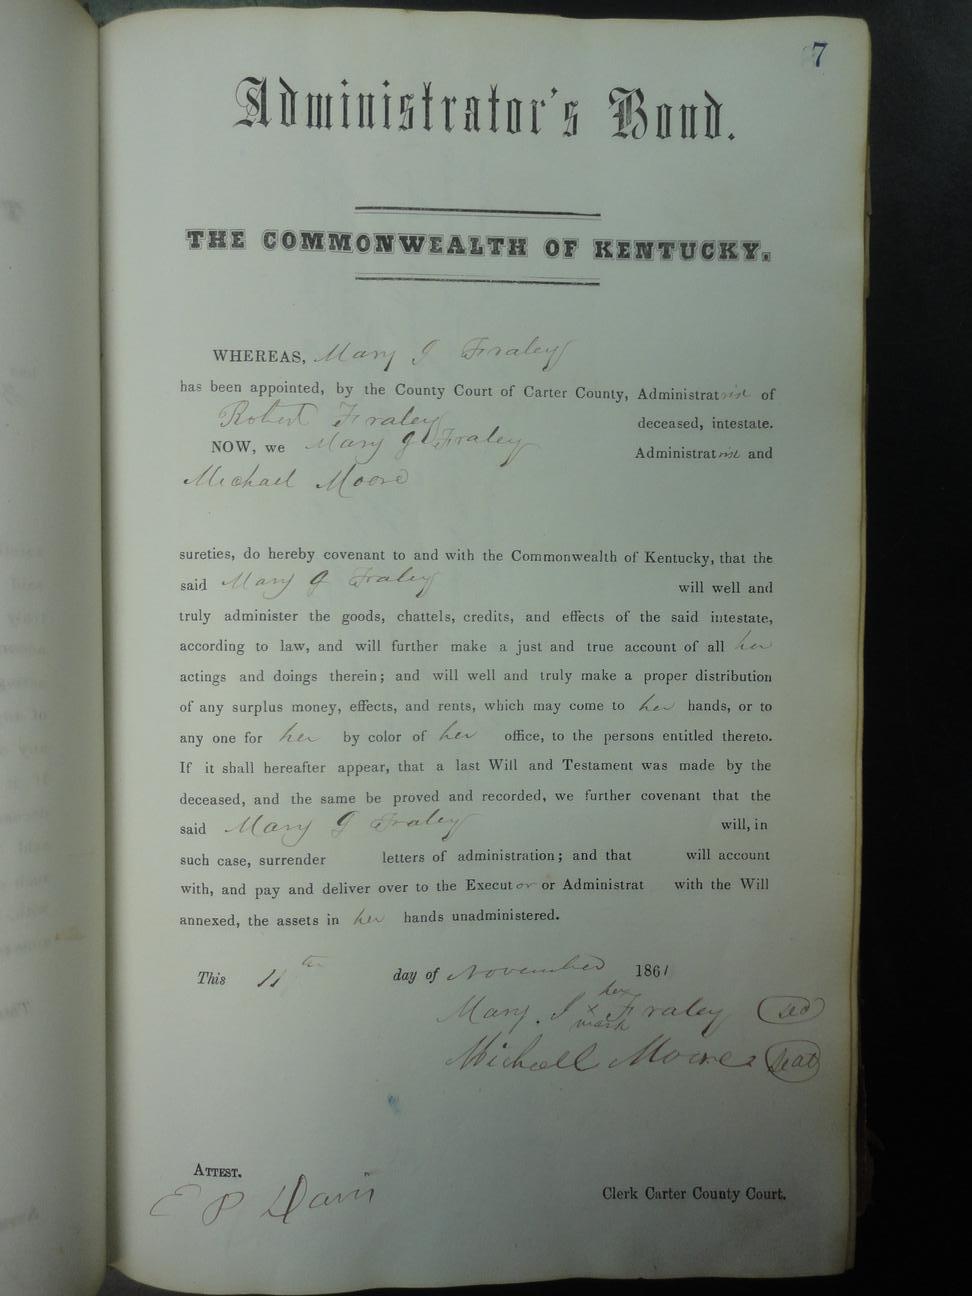 7
Administrator's Bond.
THE COMMONWEALTH OF KENTUCKY.
WHEREAS, Mary J Fraley
has been appointed, by the County Court of Carter County, Administratrix of
Robert Fraley deceased, intestate.
NOW, we Mary J Fraley Administratrix and
Michael Moore
sureties, do hereby covenant to and with the Commonwealth of Kentucky, that the
said Mary J Fraley will well and
truly administer the goods, chattels, credits, and effects of the said intestate,
according to law, and will further make a just and true account of all her
actings and doings therein; and will well and truly make a proper distribution
of any surplus money, effects, and rents, which may come to her hands, or to
any one for her by color of her office, to the persons entitled thereto.
If it shall hereafter appear, that a last Will and Testament was made by the
deceased, and the same be proved and recorded, we further covenant that the
said Mary J Fraley will, in
such case, surrender letters of administration; and that will account
with, and pay and deliver over to the Executor or Administrat with the Will
annexed, the assets in her hands unadministered.
This 11th day of November 1861
her
Mary. J x Fraley
mark
Michael Moore Seal
ATTEST.
E P Davis Clerk Carter County Court.